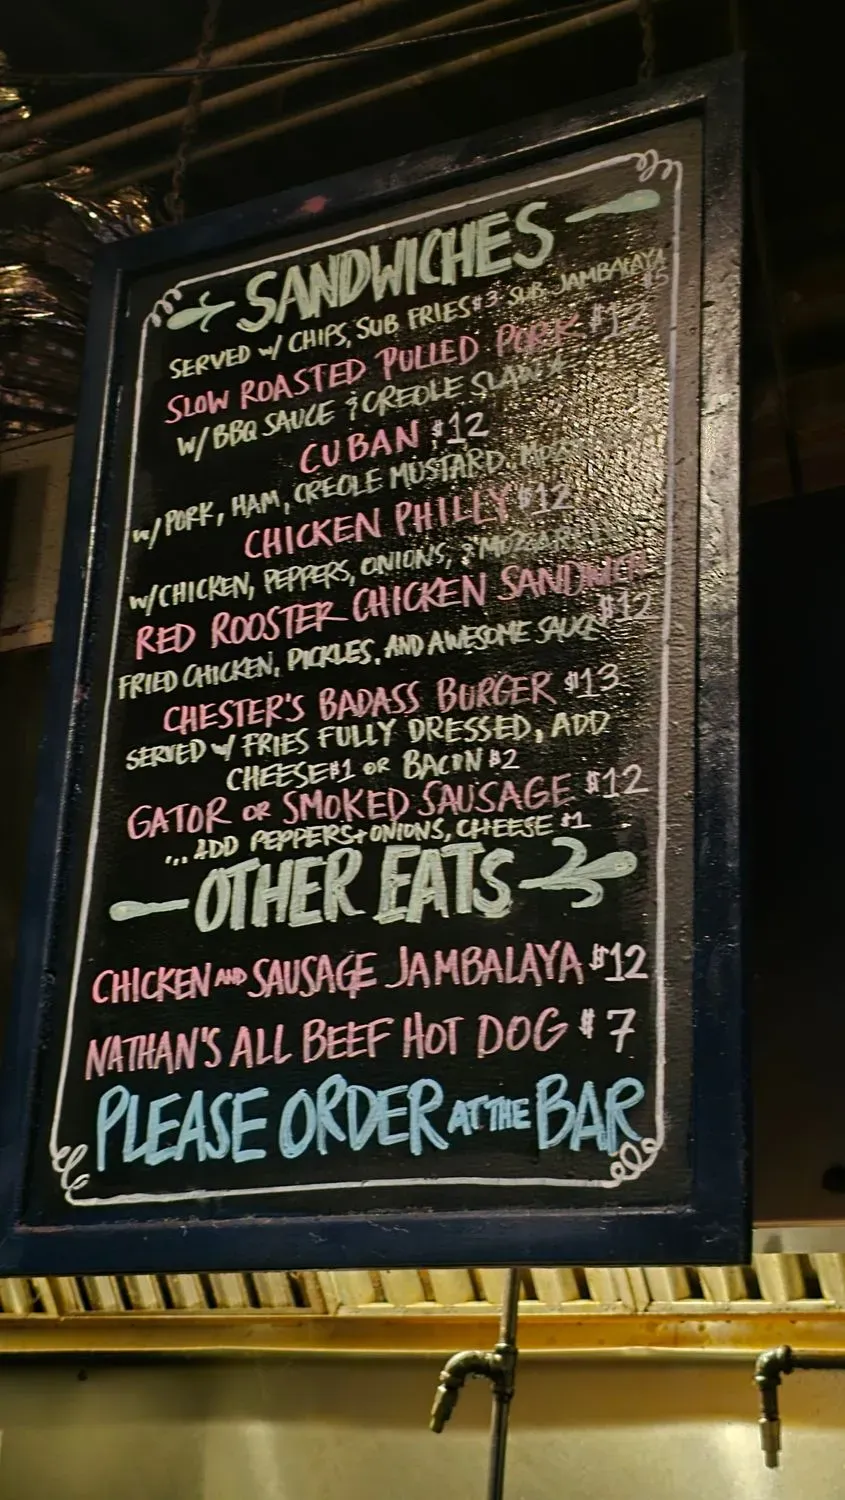 SANDWICHES
SERVED w/ CHIPS, SUB FRIES $3 SUB JAMBALAYA $5
SLOW ROASTED PULLED PORK $12
W/ BBQ SAUCE & CREOLE SLAW
CUBAN $12
w/ PORK, HAM, CREOLE MUSTARD,
CHICKEN PHILLY $12
w/ CHICKEN, PEPPERS, ONIONS, &
RED ROOSTER CHICKEN SANDWICH $12
FRIED CHICKEN, PICKLES, AND AWESOME SAUCE
CHESTER'S BADASS BURGER $13
SERVED w/ FRIES FULLY DRESSED, ADD
CHEESE $1 OR BACON $2
GATOR OR SMOKED SAUSAGE $12
... ADD PEPPERS + ONIONS, CHEESE $1
OTHER EATS
CHICKEN AND SAUSAGE JAMBALAYA $12
NATHAN'S ALL BEEF HOT DOG $7
PLEASE ORDER AT THE BAR